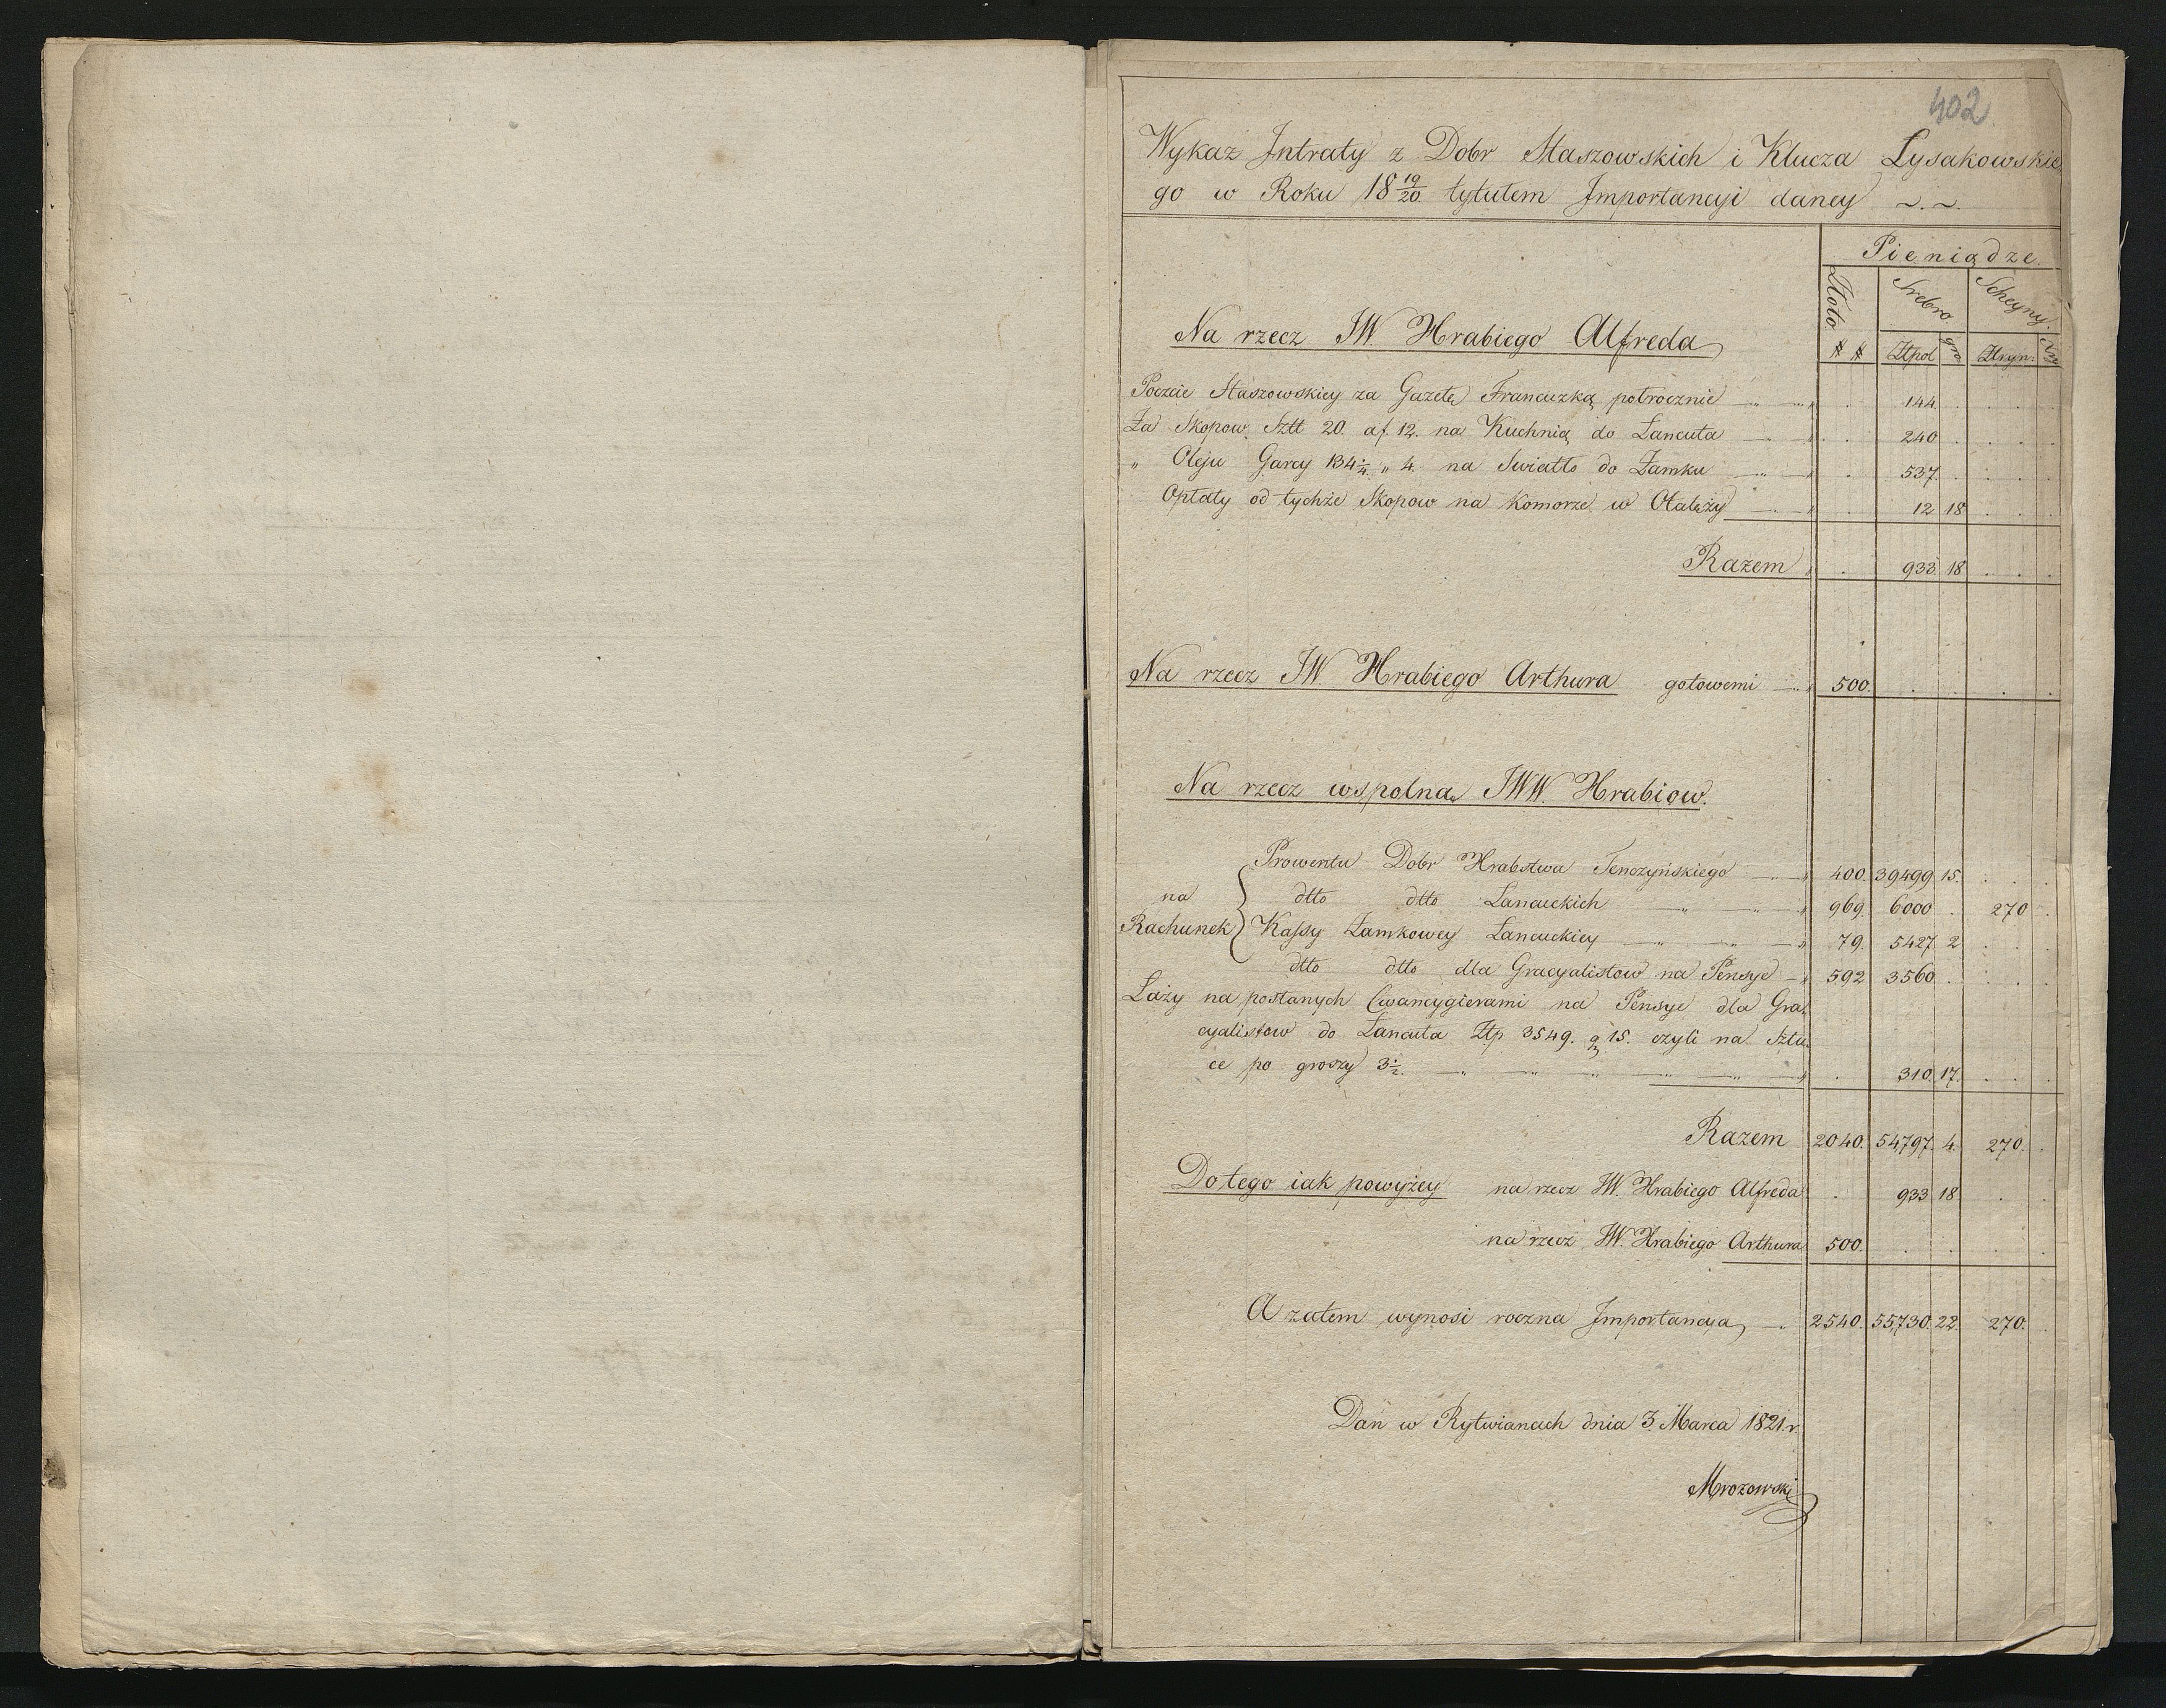 402
Wykaz Intraty z Dobr Staszowskich i Klucza Lysakowskie
go w Roku 18 19/20 tytułem Importancyi daney
Pieniądze.
Złoto. Srebro Scheyny.
## Złpol gro Zlryn: Xry
Na rzecz JW. Hrabiego Alfreda
Poczcie Staszowskiey za Gazetę Francuzką połrocznie 144.
Za Skopow Sztt 20. af. 12. na Kuchnią do Lancuta 240
" Oleju Garcy 134 1/4 " 4. na Swiatło do Zamku 537.
Opłaty od tychże Skopow na Komorze w Otalęży 12 18
Razem 933. 18
Na rzecz JW. Hrabiego Arthura gotowemi 500.
Na rzecz wspolną JWW. Hrabiow.
Prowentu Dobr Hrabstwa Tenczyńskiego 400. 39499 15.
na dtto dtto Lancuckich 969. 6000 270
Rachunek Kassy Zamkowey Lancuckiey 79. 5427. 2
dtto dtto dla Gracyalistow na Pensye 592 3560
Laży na posłanych Cwancygierami na Pensye dla Gra
cyalistow do Lancuta Złp 3549. g 15. czyli na Sztu
ce po groszy 3 1/2. 310. 17.
Razem 2040. 54,797. 4. 270.
Do tego iak powyżey na rzecz JW. Hrabiego Alfreda 933 18
na rzecz JW. Hrabiego Arthura 500.
A zatem wynosi roczna Importancya, 2540. 55,730. 22. 270.
Dan w Rytwianach dnia 3. Marca 1821. r.
Mrozowski